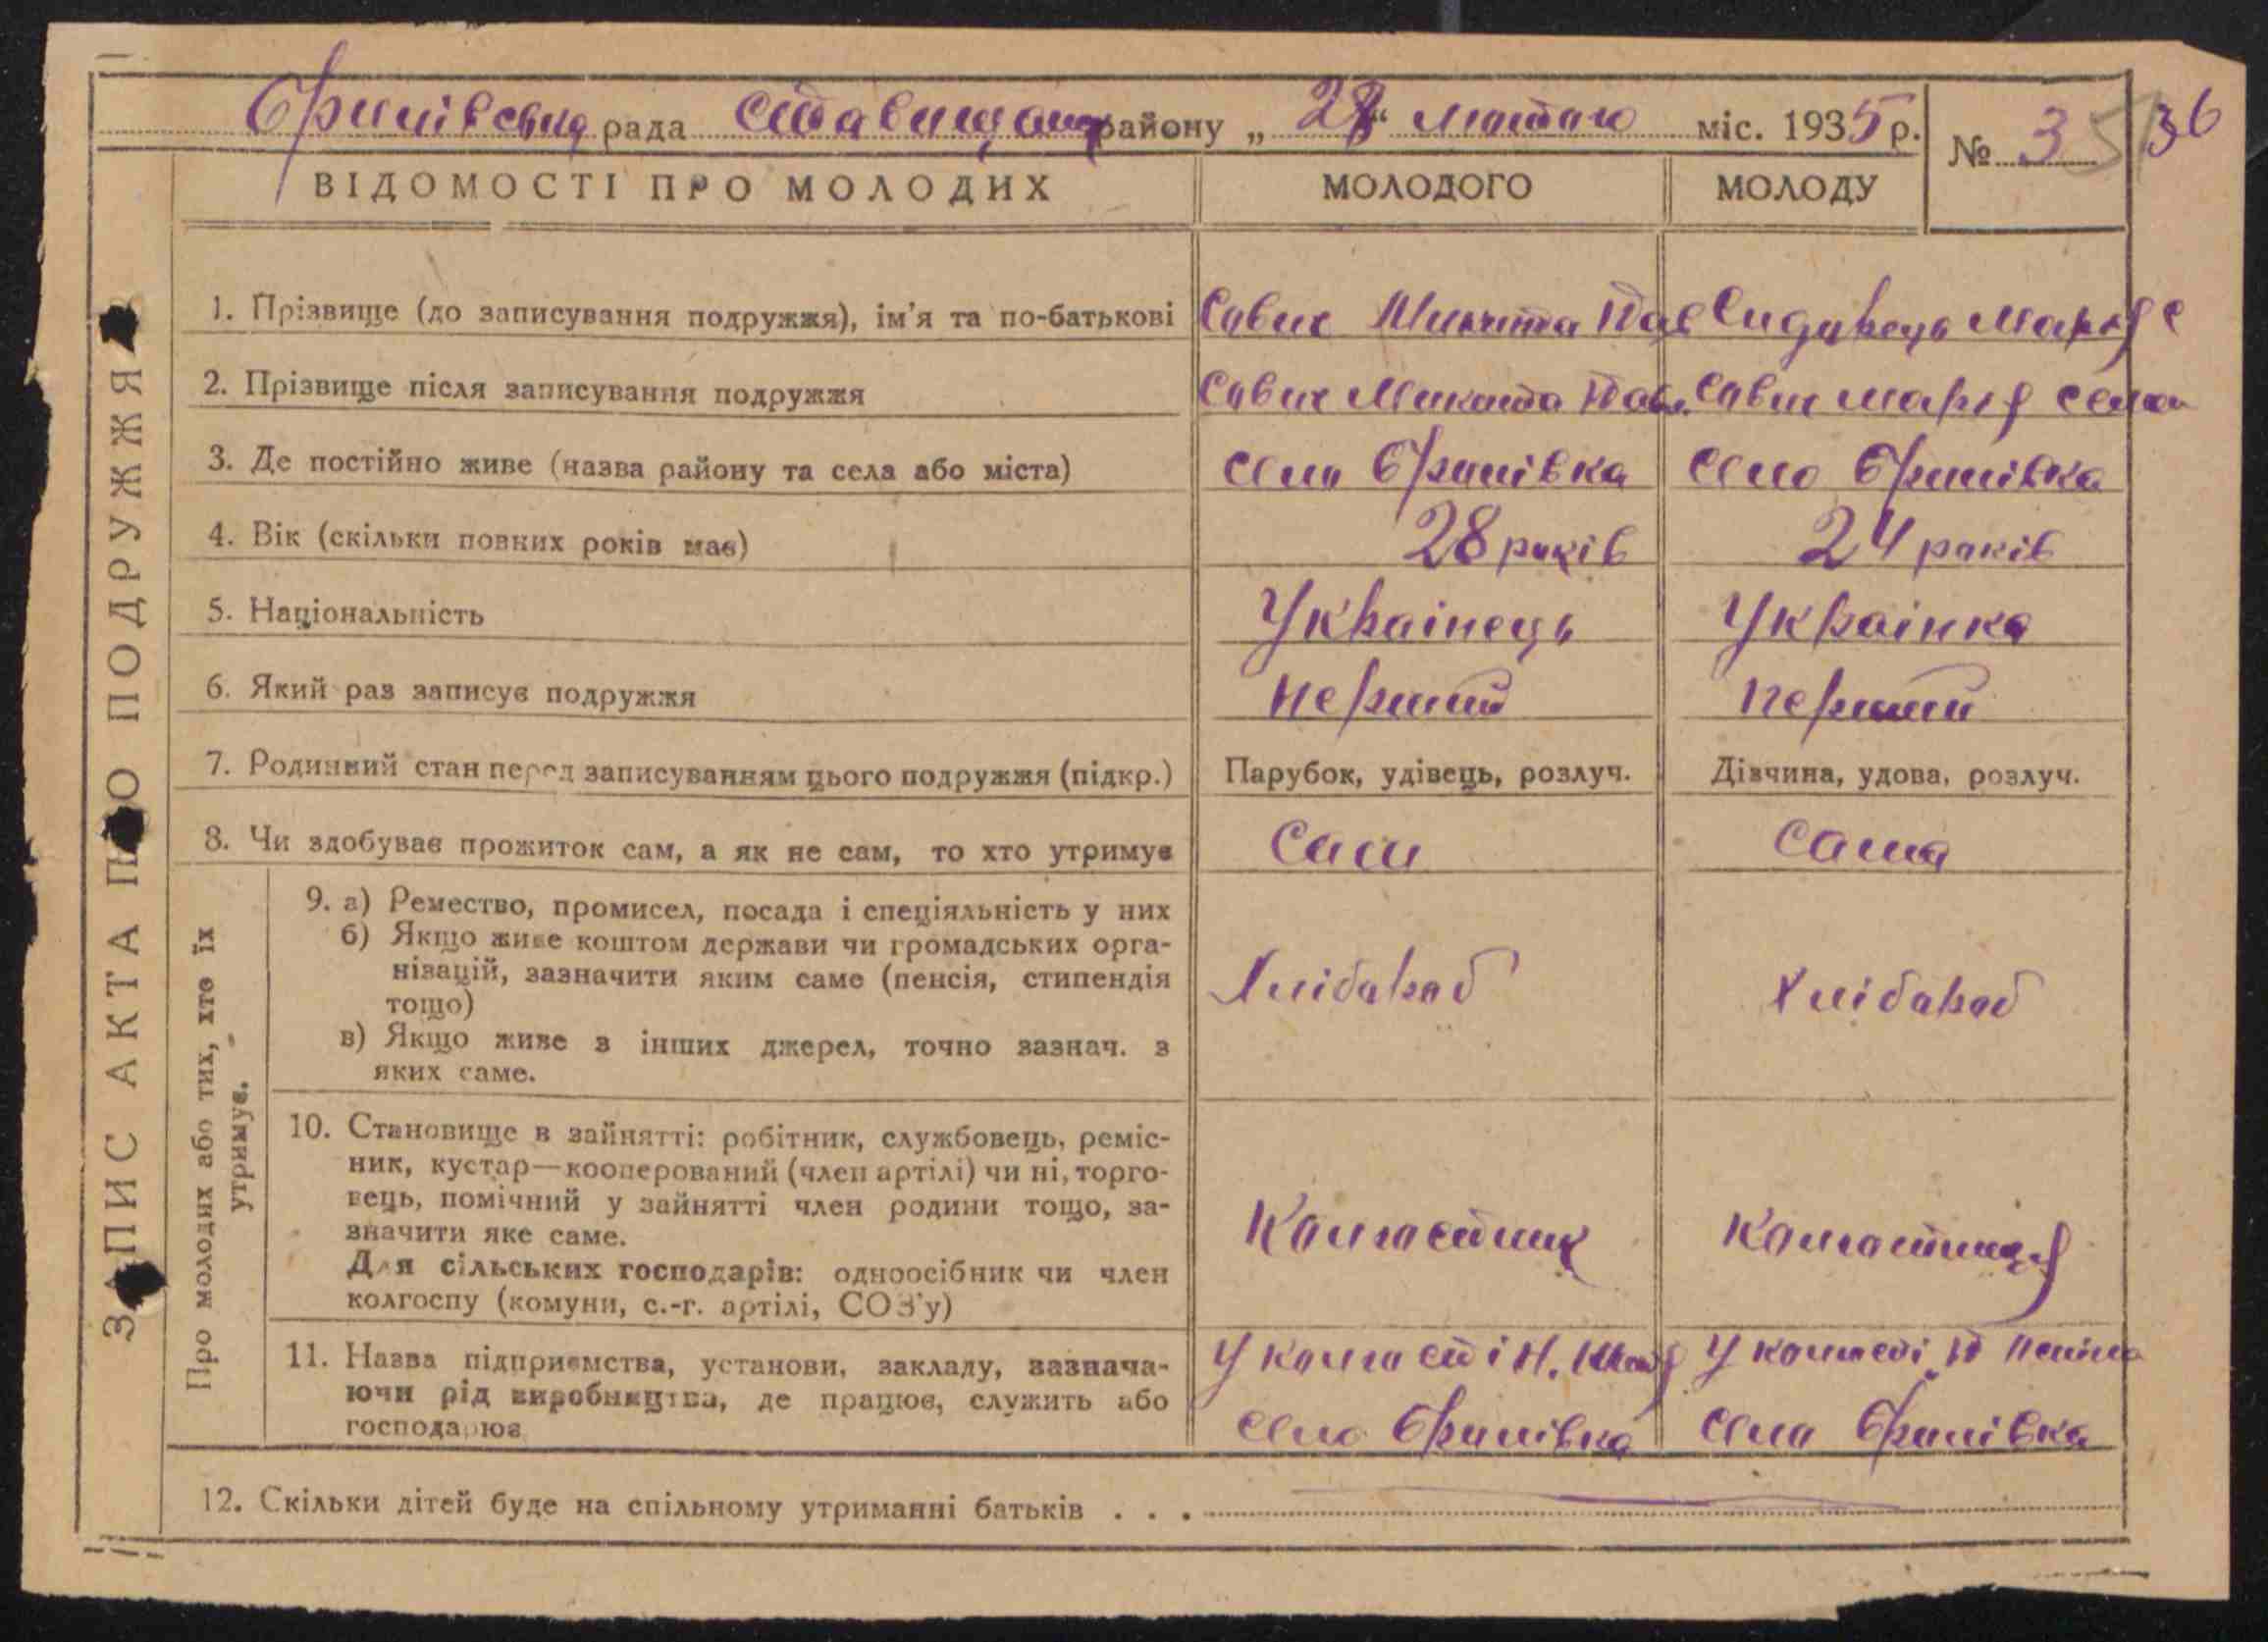 рада району „ 28 “ лютого міс. 1935 р. № 3 36
ВІДОМОСТІ ПРО МОЛОДИХ МОЛОДОГО МОЛОДУ
ЗАПИС АКТА ПРО ПОДРУЖЖЯ
1. Прізвище (до записування подружжя), ім'я та по-батькові Савич Микита Пав Марія С
2. Прізвище після записування подружжя Савич Микита Павл. Савич Марія Семен
3. Де постійно живе (назва району та села або міста) село Єрчиківка село Єрчиківка
4. Вік (скільки повних років має) 28 років 24 років
5. Національність Українець Українка
6. Який раз записує подружжя перший перший
7. Родинний стан перед записуванням цього подружжя (підкр.) Парубок, удівець, розлуч. Дівчина, удова, розлуч.
8. Чи здобуває прожиток сам, а як не сам, то хто утримує Сам Сама
Про молодих або тих, хто їх утримує.
9. а) Ремество, промисел, посада і спеціяльність у них
б) Якщо живе коштом держави чи громадських орга-
нізацій, зазначити яким саме (пенсія, стипендія
тощо)
в) Якщо живе з інших джерел, точно зазнач. з
яких саме.
Хлібароб Хлібароб
10. Становище в зайнятті: робітник, службовець, реміс-
ник, кустар—кооперований (член артілі) чи ні, торго-
вець, помічний у зайнятті член родини тощо, за-
значити яке саме.
Для сільських господарів: одноосібник чи член
колгоспу (комуни, с.-г. артілі, СОЗ'у)
Колгостник Колгостниця
11. Назва підприємства, установи, закладу, зазнача-
ючи рід виробництва, де працює, служить або
господарює
У колгості У колгості
село село
12. Скільки дітей буде на спільному утриманні батьків . . .